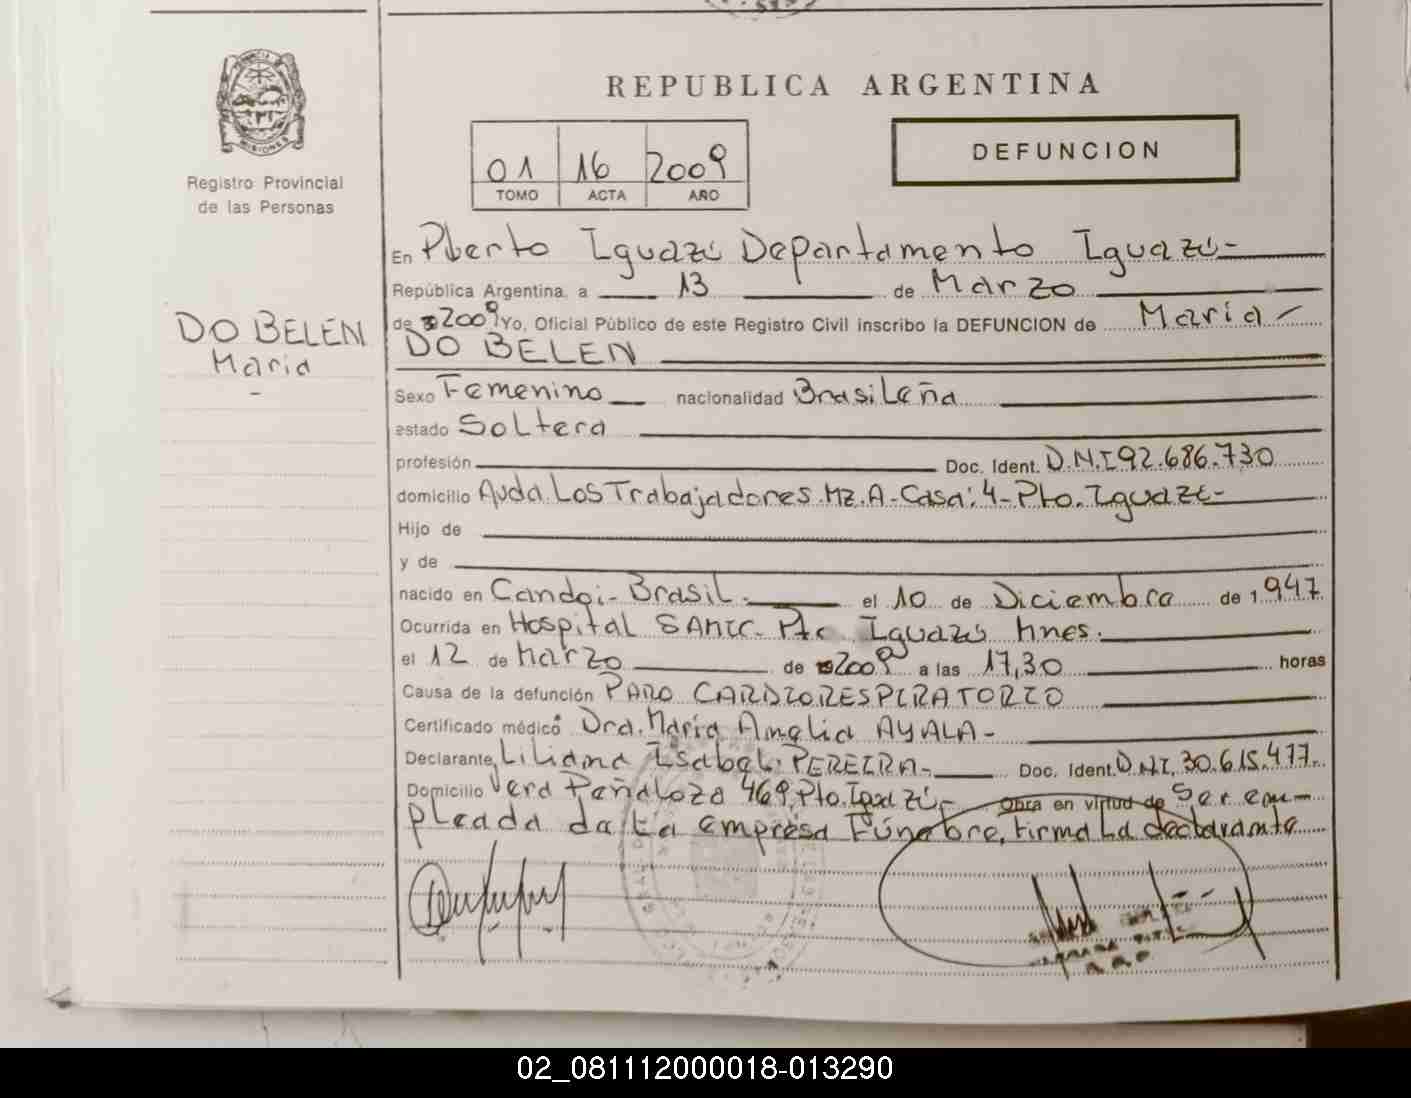 PROVINCIA DE
MISIONES
Registro Provincial
de las Personas
DO BELEN
Maria
-
REPUBLICA ARGENTINA
01 16 2009
TOMO ACTA AÑO
DEFUNCION
En Pberto Iguazú Departamento Iguazú-
República Argentina, a 13 de Marzo
de 2009 Yo, Oficial Público de este Registro Civil inscribo la DEFUNCION de María
DO BELEN
Sexo Femenino nacionalidad Brasileña
estado Soltera
profesión Doc. Ident. D.N.I 92.686.730
domicilio Avda. Los Trabajadores. Mz. A - Casa: 4 - Pto. Iguazú-
Hijo de
y de
nacido en Candoi - Brasil. el 10 de Diciembre de 1.947
Ocurrida en Hospital SAMIC - Pto Iguazú Mnes.
el 12 de Marzo de 2009 a las 17,30 horas
Causa de la defunción PARO CARDIORESPIRATORIO
Certificado médico Dra. María Amelia AYALA-
Declarante, Liliana Isabel PEREIRA- Doc. Ident. D.N.I. 30.615.477.
Domicilio Vera Peñaloza 469, Pto. Iguazú- Obra en virtud de Ser em-
pleada de La empresa Fúnebre, firma La declarante
02_081112000018-013290